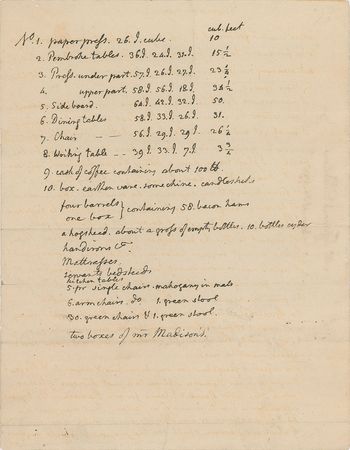 cub. feet
No. 1. paper press. 26. I. cube. 10
2. Pembroke tables. 36.I. 24.I. 31.I. 15 1/2
3. Press. under part. 57.I. 26.I. 27.I. 23 1/4
4. upper part. 58.I. 56.I. 18.I. 34 1/2
5. Side board. 64.I. 42.I. 32.I. 50.
6. Dining tables 58.I. 33.I. 26.I. 31.
7. Chair — — 56.I. 29.I. 29.I. 26 1/4
8. Writing table — 39.I. 33.I. 7.I. 3 3/4
9. cask of coffee containing about 100 ℔.
10. box. earthen ware. some chine. candlesticks
four barrels
one box } containing 58. bacon hams
a hogshead. about a gross of empty bottles. 10. bottles cyder
handirons &c.
Mattrasses.
servants bedsteds
kitchen tables
5. pr single chairs. mahogany in mats
6. arm chairs. do 1. green stool
30. green chairs & 1. green stool.
two boxes of mr Madison's.